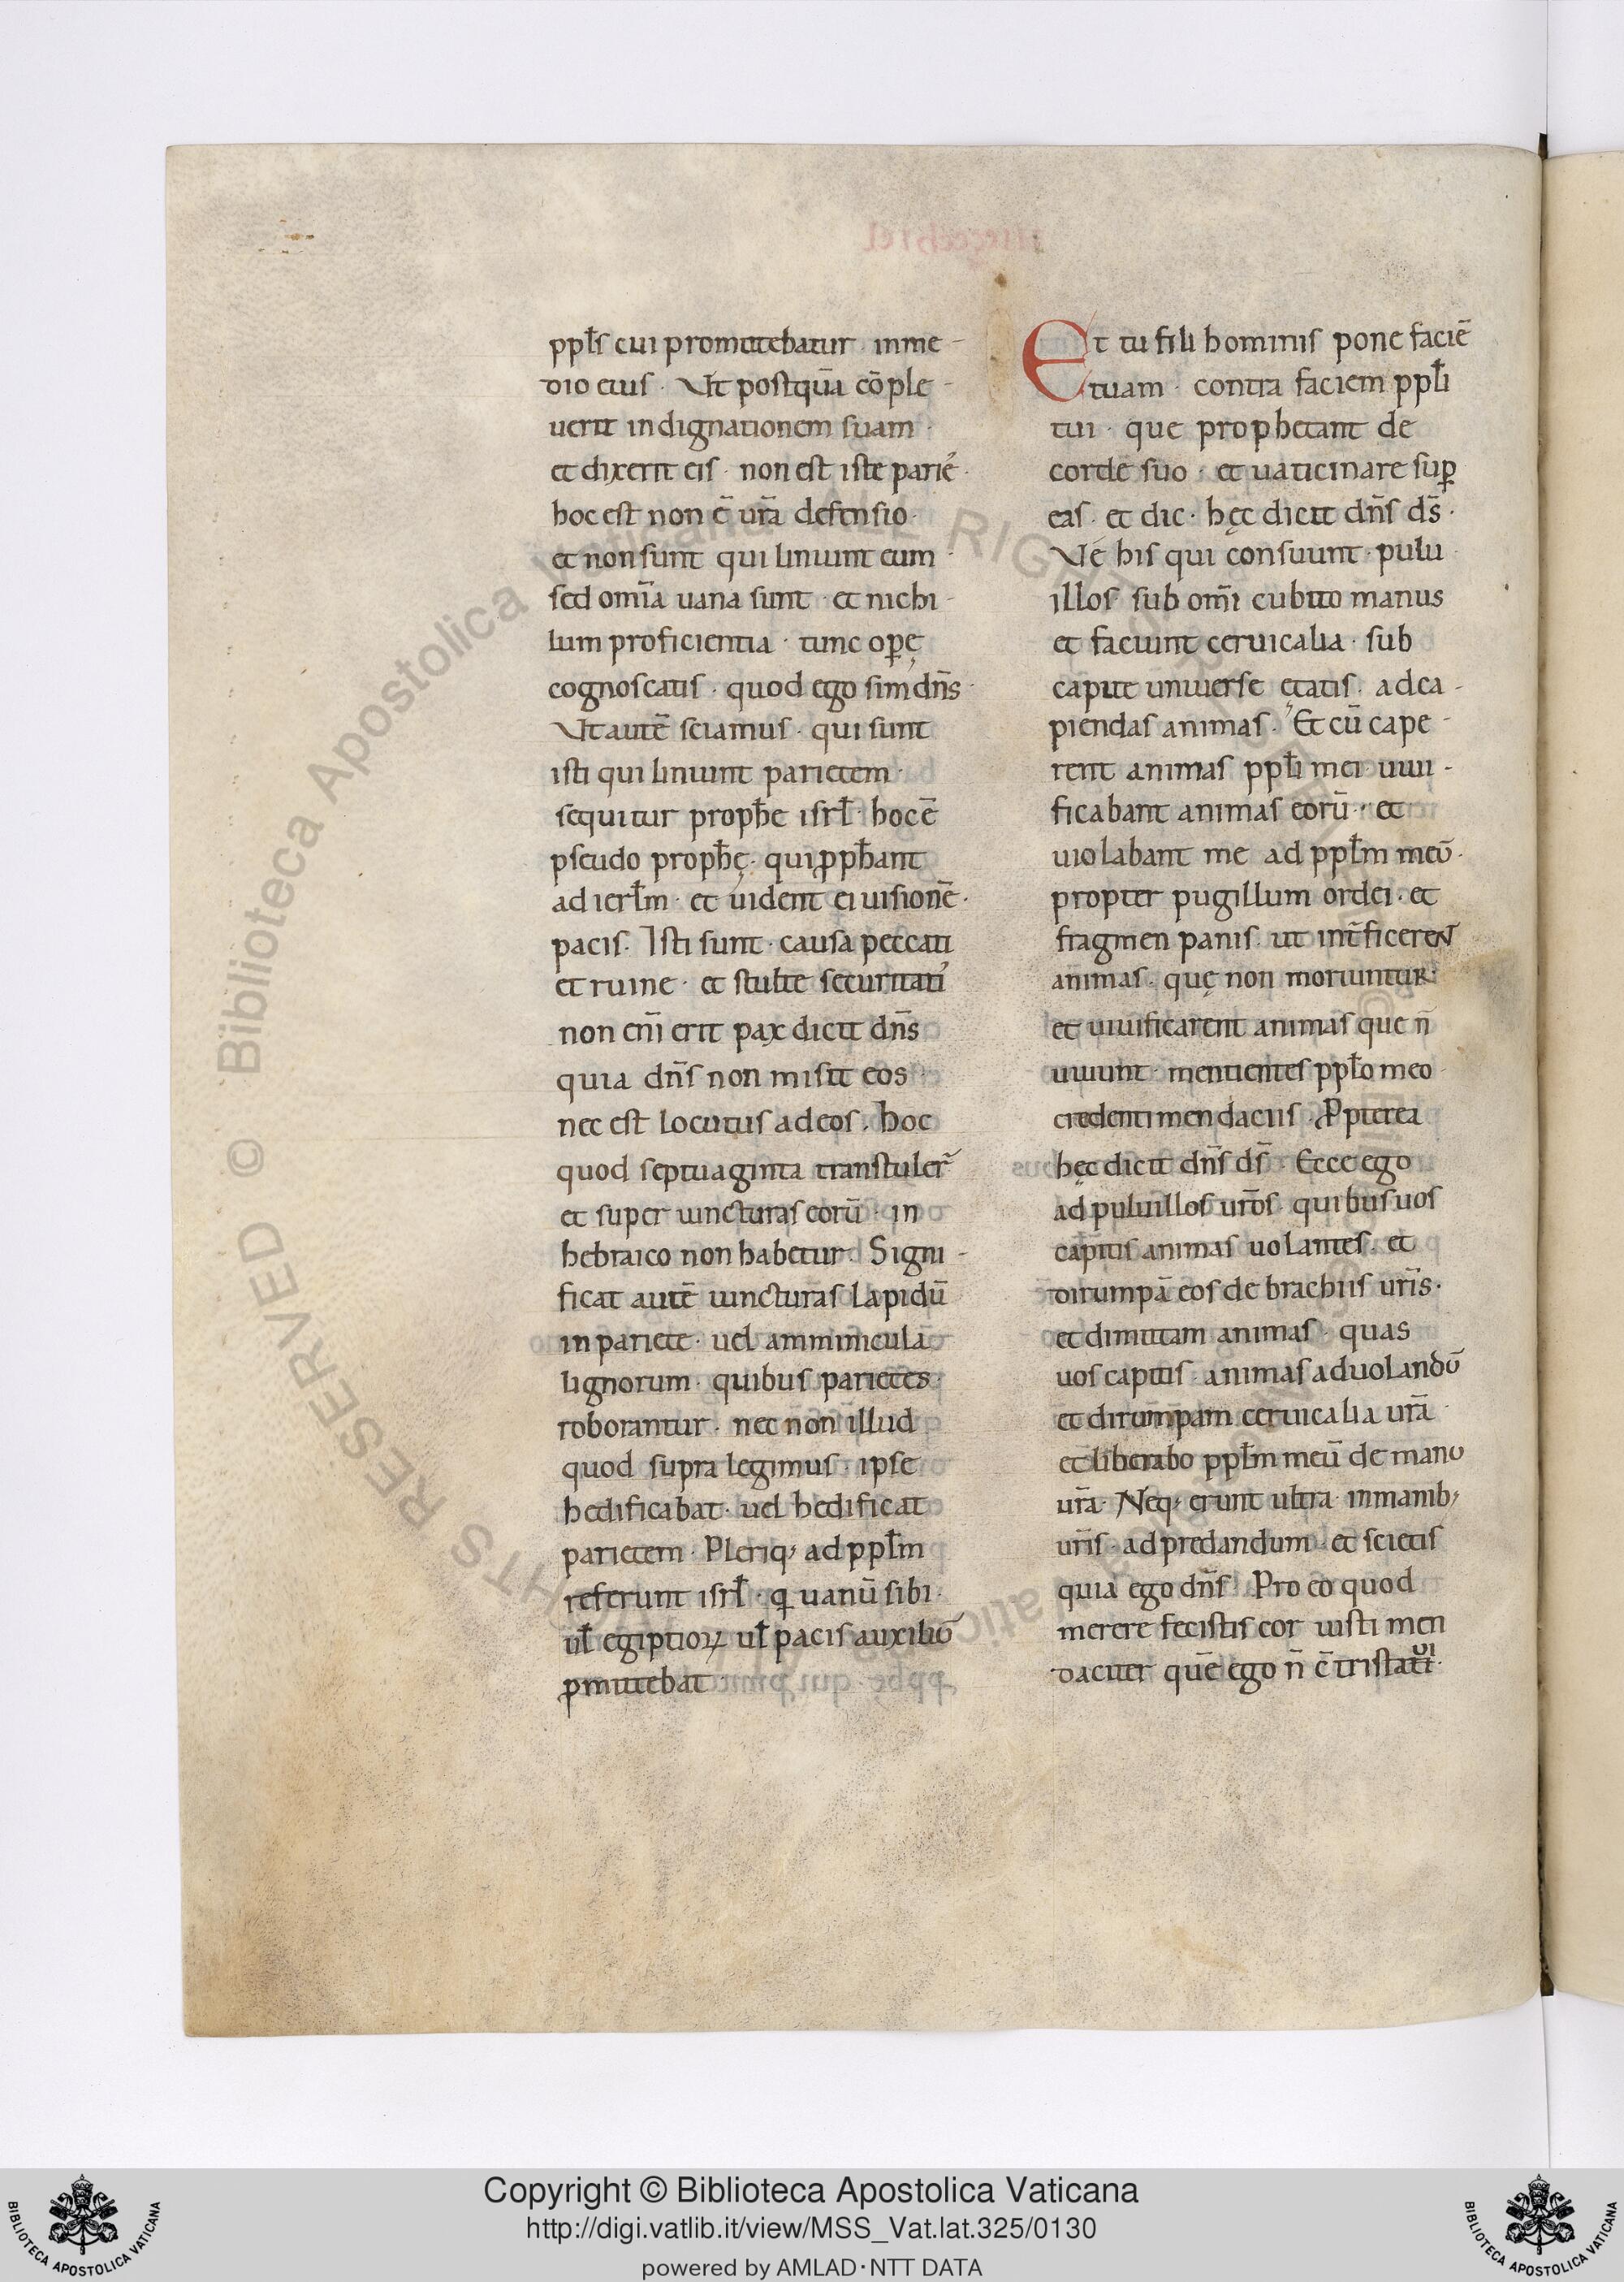 ppl̄s cui promittebatur · in me-
dio eius · Ut postquā cōple-
uerit indignationem suam ·
et dixerit eis · non est iste parie᷒ ·
hoc est non ē ur̄a defensio ·
et non sunt qui liniunt eum ·
sed omīa uana sunt · et nichi-
lum proficientia · tunc oꝑę
cognoscatis · quod ego sim dn̄s ·
Ut autē sciamus · qui sunt
isti qui liniunt parietem ·
sequitur proph̄e isrl̄ · hoc ē
pseudo proph̄ę · qui ꝓph̄ant
ad ierl̄m · et uident ei uisionē ·
pacis · Isti sunt · causa peccati
et ruine · et stulte securitati᷒
non enī erit pax dicit dn̄s
quia dn̄s non misit eos
nec est locutus ad eos · hoc
quod septuaginta transtuler̄
et super uincturas eorū · in
hebraico non habetur · Signi-
ficat autē uincturas lapidū
in pariete · uel amminicula
lignorum · quibus parietes ·
roborantur · nec non illud
quod supra legimus · ipse
hedificabat · uel hedificat
parietem · Pleriq; ad ppl̄m
referunt isrl̄ · ꝙ uanū sibi ·
ul̄ egiptioꝝ ul̄ pacis auxiliū
ꝓmittebat ·
Et tu fili hominis pone faciē
tuam · contra faciem ppl̄i
tui · que prophetant de
corde suo · et uaticinare suꝑ
eas · et dic · hęc dicit dn̄s ds̄ ·
Ve his qui consuunt · pulu
illos · sub om̄i cubito manus
et faciunt ceruicalia · sub
capite uniuerse etatis · ad ca-
piendas animas · Et cū cape-
rent animas ppl̄i mei · uiui-
ficabant animas eorū · et
uiolabant me ad ppl̄m meū ·
propter pugillum ordei · et
fragmen panis · ut int̄ficerent
animas · quę non moriuntur ·
et uiuificarent animas que n̄
uiuunt · mentientes ppl̄o meo ·
credenti mendaciis · Ꝓpterea
hęc dicit dn̄s ds̄ · Ecce ego
ad puluillos ur̄os · quibus uos
capitis animas uolantes · et
dirumpā eos de brachiis ur̄is ·
et dimittam animas · quas
uos capitis · animas ad uolandū
et dirumpam ceruicalia ur̄a ·
et liberabo ppl̄m meū de manu
ur̄a · Neq; erunt ultra · in manib;
ur̄is · ad predandum · et scietis
quia ego dn̄s · Pro eo quod
merere fecistis cor iusti men
daciter quē ego n̄ c̄tristaui ·
Biblioteca Apostolica Vaticana
Copyright © Biblioteca Apostolica Vaticana
http://digi.vatlib.it/view/MSS_Vat.lat.325/0130
powered by AMLAD·NTT DATA
BIBLIOTECA APOSTOLICA VATICANA
BIBLIOTECA APOSTOLICA VATICANA